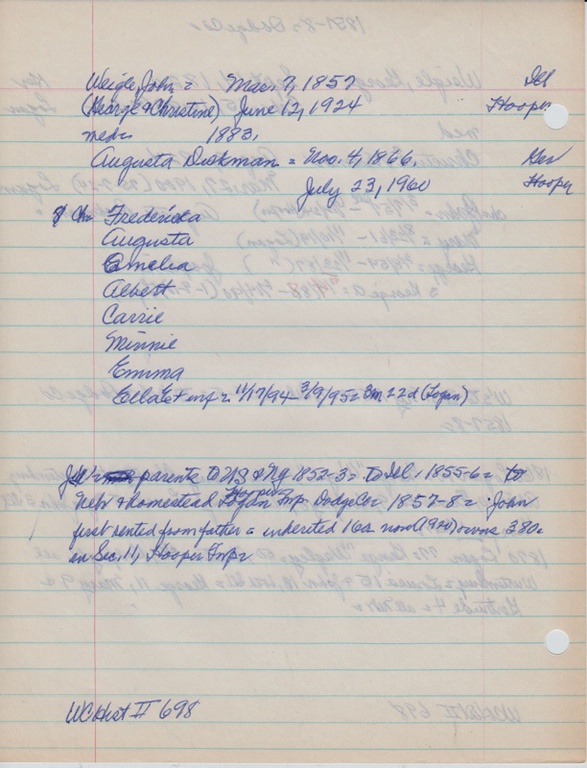 Weigle, John = Mar. 7, 1857 Ill
(George & Christine) June 12, 1924 Hooper
med = 1883,
Augusta Diekman = Nov. 4, 1866, Ger
July 23, 1960 Hooper
8 Ch = Fredericka
Augusta
Amelia
Albert
Carrie
Minnie
Emma
Ella E + inf = 11/17/94 - 3/9/95 = 3m 22d (Logan)
parents to US & NY 1852-3 = to Ill, 1855-6 = to
Nebr & homestead Logan Hooper Tmp = Dodge Co = 1857-8 = John
first rented from father = inherited 16a now (1920) owns 380a
in Sec. 11, Hooper Tmp =
WC Hist II 698